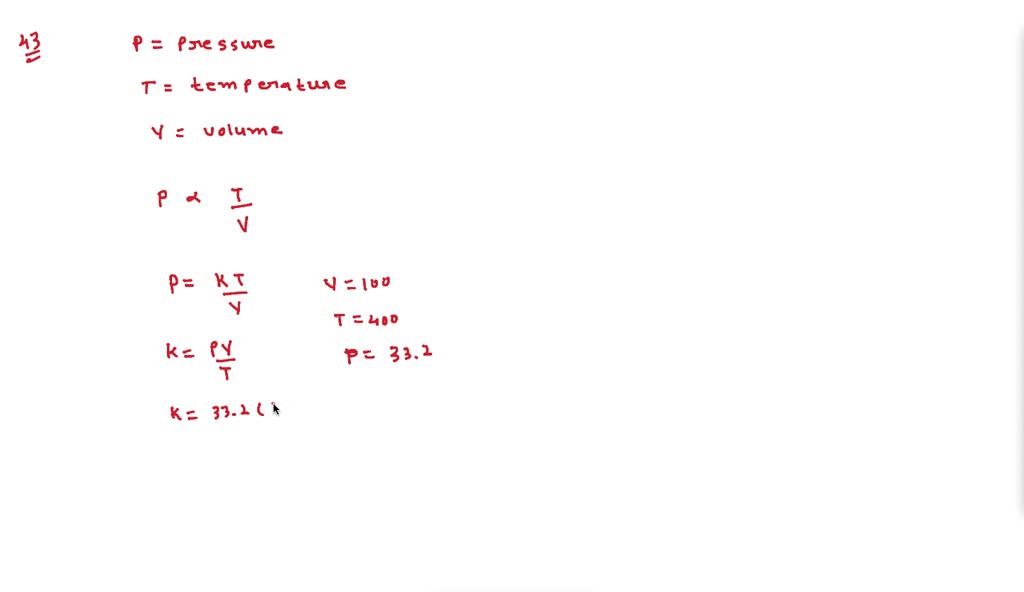 43
P = Pressure
T = temperature
V = volume
P ∝ T/V
P = KT/V
V = 100
T = 400
K = PV/T
P = 33.2
K = 33.2 (